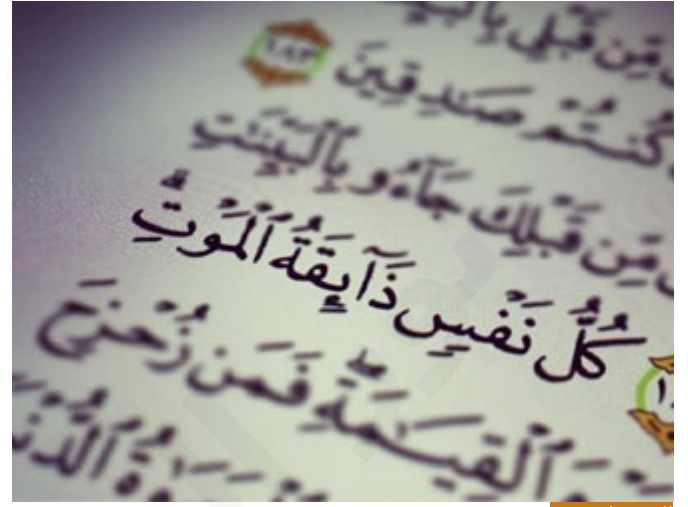 مِّن قَبْلِي بِٱلْبَيِّ
كُنتُمْ صَٰدِقِينَ ١٨٣
مِّن قَبْلِكَ جَآءُو بِٱلْبَيِّنَٰتِ
كُلُّ نَفْسٍ ذَآئِقَةُ ٱلْمَوْتِ ۗ
ٱلْقِيَٰمَةِ ۖ فَمَن زُحْزِحَ
ٱلدُّنْيَا